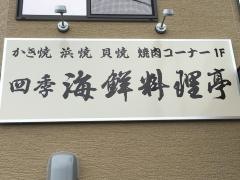 かき焼 浜焼 貝焼 焼肉コーナー1F
四季海鮮料理亭